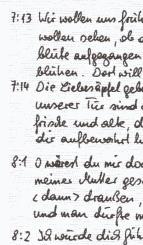 7:13 Wir wollen uns früh
wollen sehen, ob
blüte aufgegangen
blühen. Dort will
7:14 Die Liebesäpfel geb
unserer Tür sind
frische und alte, d
dir aufbewahrt h
8:1 O wärest du mir doc
meiner Mutter ges
<dann> draußen,
und man dürfte m
8:2 Ich würde dich füh